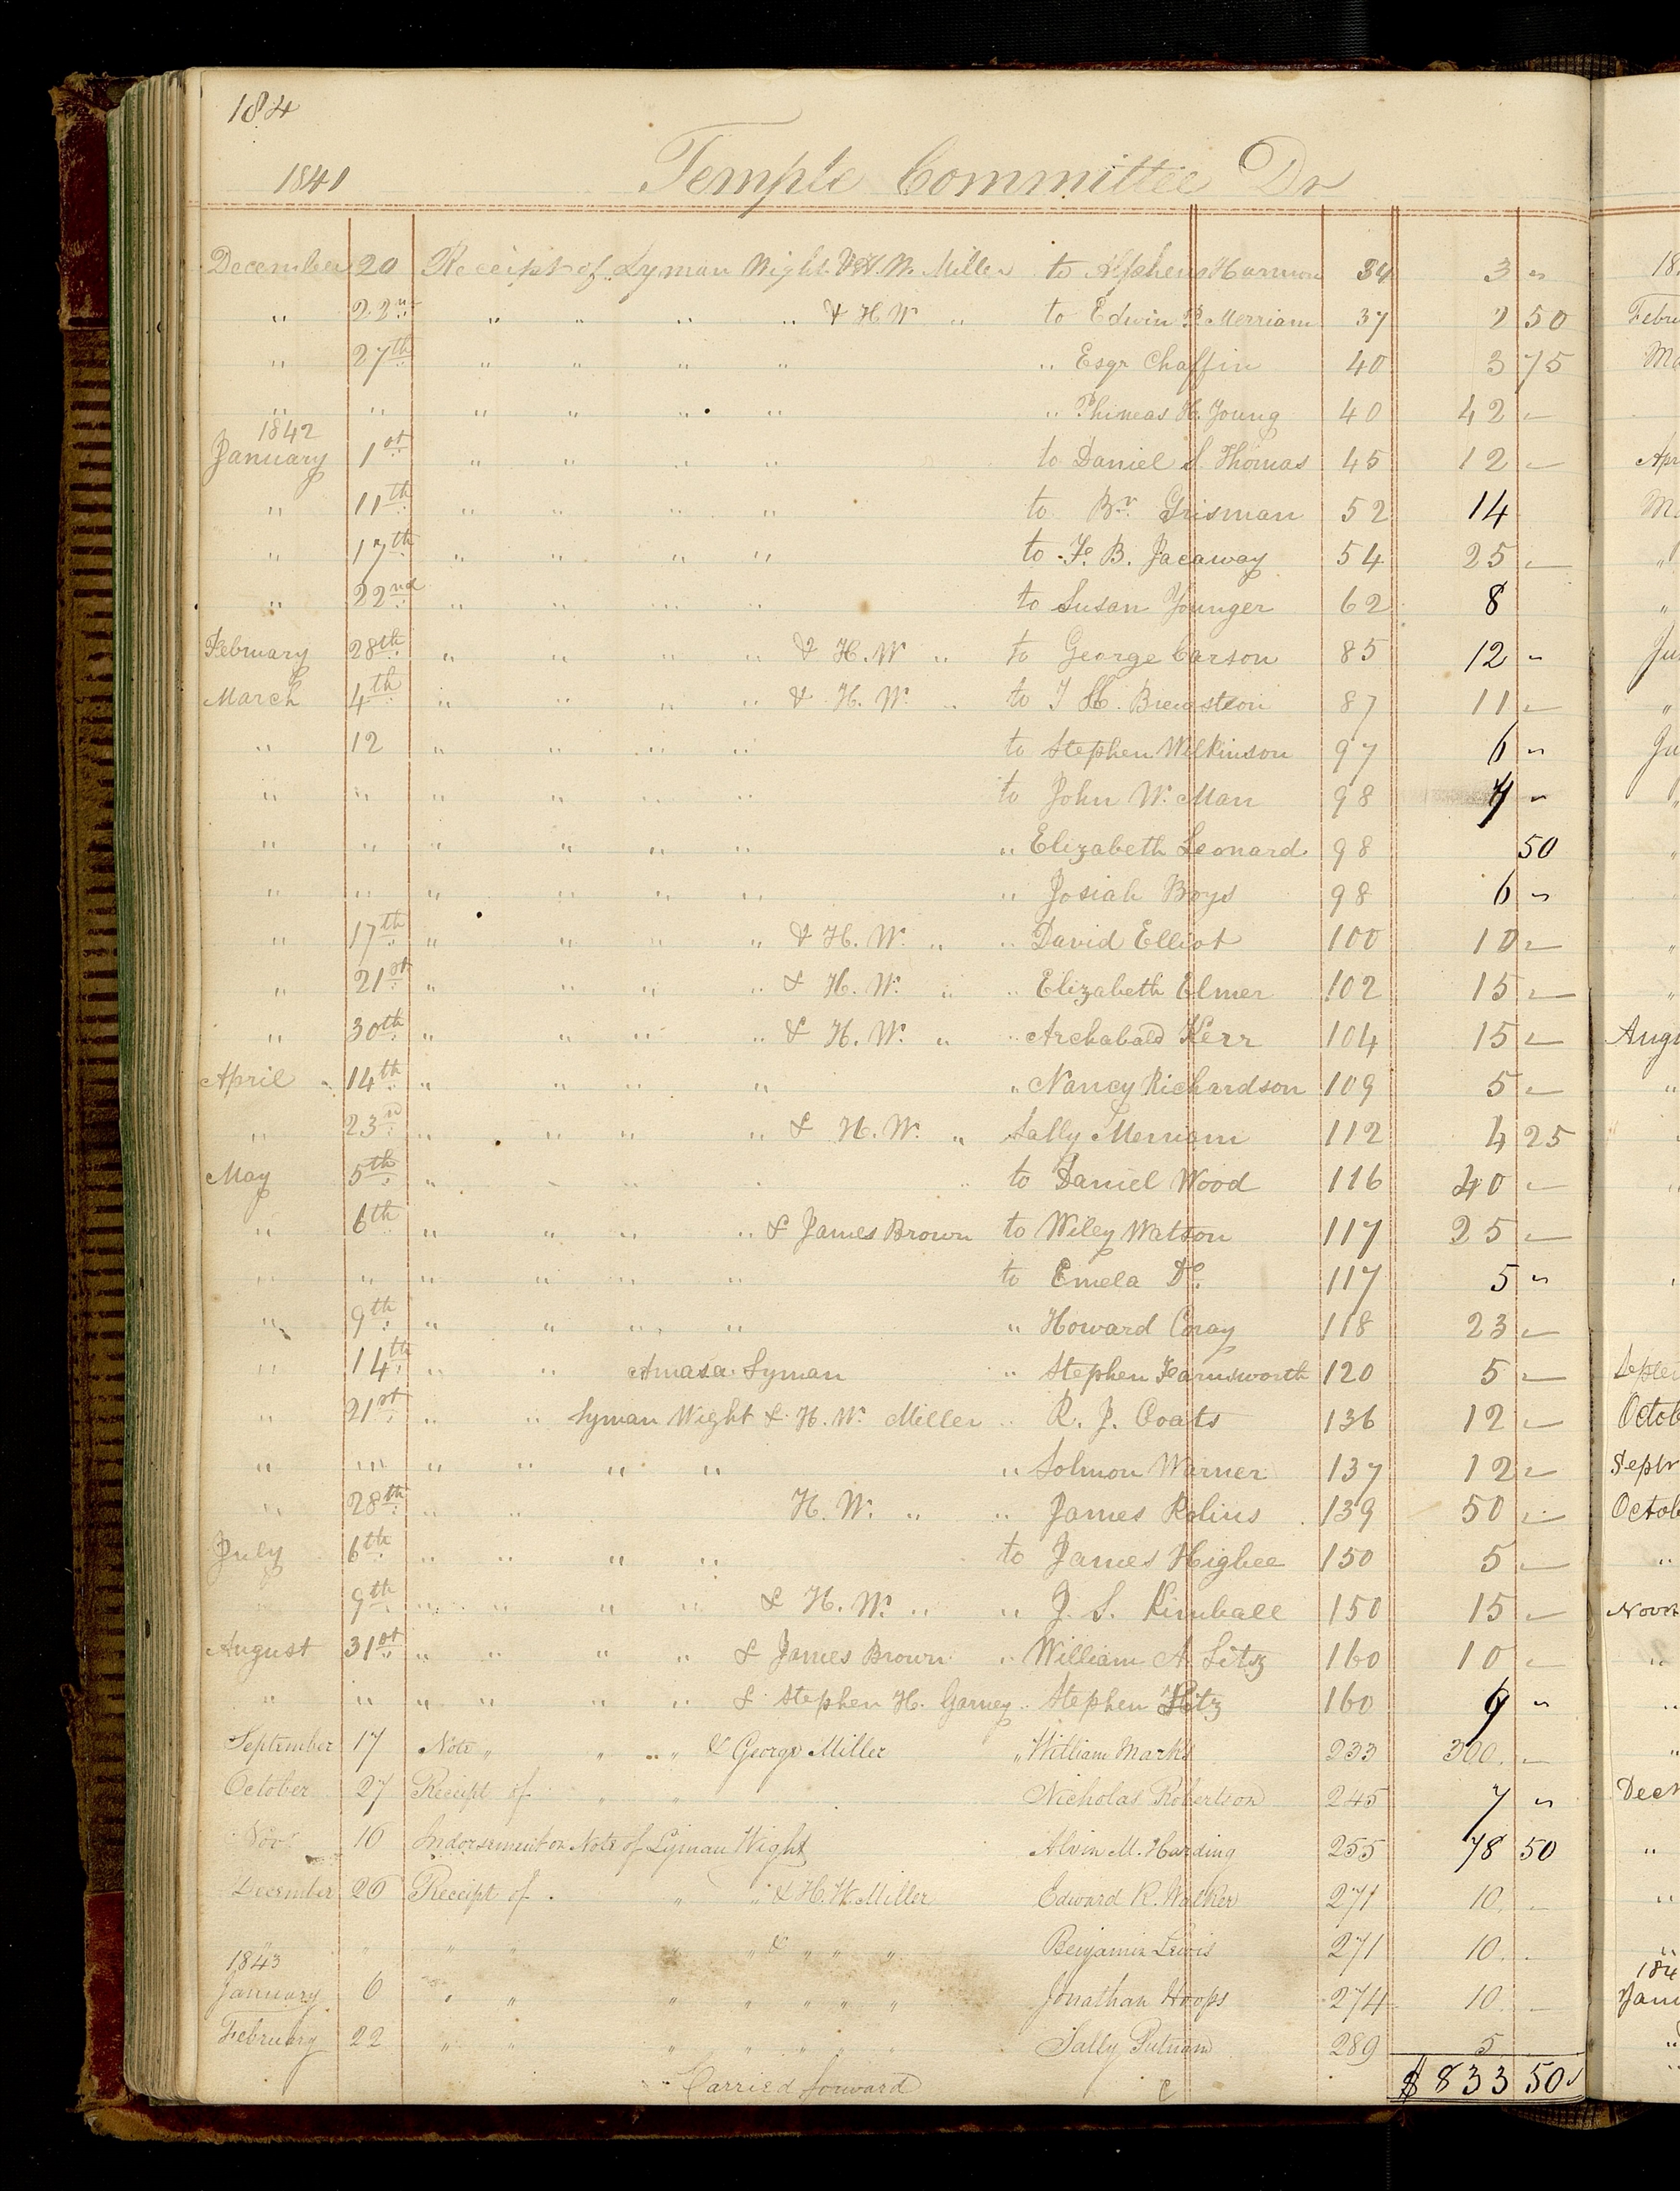 184
1841 Temple Committee Dr
December 20 Receipt of Lyman Wight & H. W. Miller to Alpheus Harmon 34 3 "
" 22nd " " " " & H W " to Edwin B. Merriam 37 2 50
" 27th " " " " " Esqr Chaffin 40 3 75
" " " " " " " Phineas H. Young 40 42 —
1842
January 1st " " " " to Daniel S. Thomas 45 12 —
" 11th " " " " to Br. Grisman 52 14
" 17th " " " " to F. B. Jacaway 54 25 —
" 22nd " " " " to Susan Younger 62 8
February 28th " " " " & H. W " to George Carson 85 12 "
March 4th " " " " & H. W. " to 87 11 —
" 12 " " " " to Stephen Wilkinson 97 6 "
" " " " " " to John W. Man 98 4 "
" " " " " " " Elizabeth Leonard 98 50
" " " " " " " Josiah Boys 98 6 "
" 17th " " " " & H. W. " " David Elliot 100 10 —
" 21st " " " " & H. W. " " Elizabeth Elmer 102 15 —
" 30th " " " " & H. W. " " Archabald Kerr 104 15 —
April " 14th " " " " " Nancy Richardson 109 5 —
" 23rd " " " " & H. W. " Sally Merriam 112 4 25
May 5th " " " " " to Daniel Wood 116 40 —
" 6th " " " " & James Brown to Wiley Watson 117 25 —
" " " " " " to Emela Do. 117 5 "
" 9th " " " " " Howard Coray 118 23 —
" 14th " " Amasa Lyman " Stephen Farnsworth 120 5 —
" 21st " " Lyman Wight & H. W. Miller " R. J. Coats 136 12 —
" " " " " " " Solmon Warner 137 12 —
" 28th " " H. W. " " James Rolins 139 50 —
July 6th " " " " to James Higbee 150 5 —
" 9th " " " " & H. W. " " J. S. Kimball 150 15 —
August 31st " " " " & James Brown " William A Litz 160 10 —
" " " " " " & Stephen H. " Stephen Litz 160 6 "
September 17 Note " " " " & George Miller " William Marks 233 300 —
October 27 Receipt of " " Nicholas Robertson 245 7 "
Novr 10 Indorsement on Note of Lyman Wight Alvin M. Harding 255 78 50
December 20 Receipt of " " & H. W. Miller Edward R. Walker 271 10 —
" " " " " " & " " " Benjamin Lewis 271 10 —
1843
January 6 " " " " " " " Jonathan Hoops 274 10 —
February 22 " " " " " " " Sally Putnam 289 5
Carried forward $ 833 50